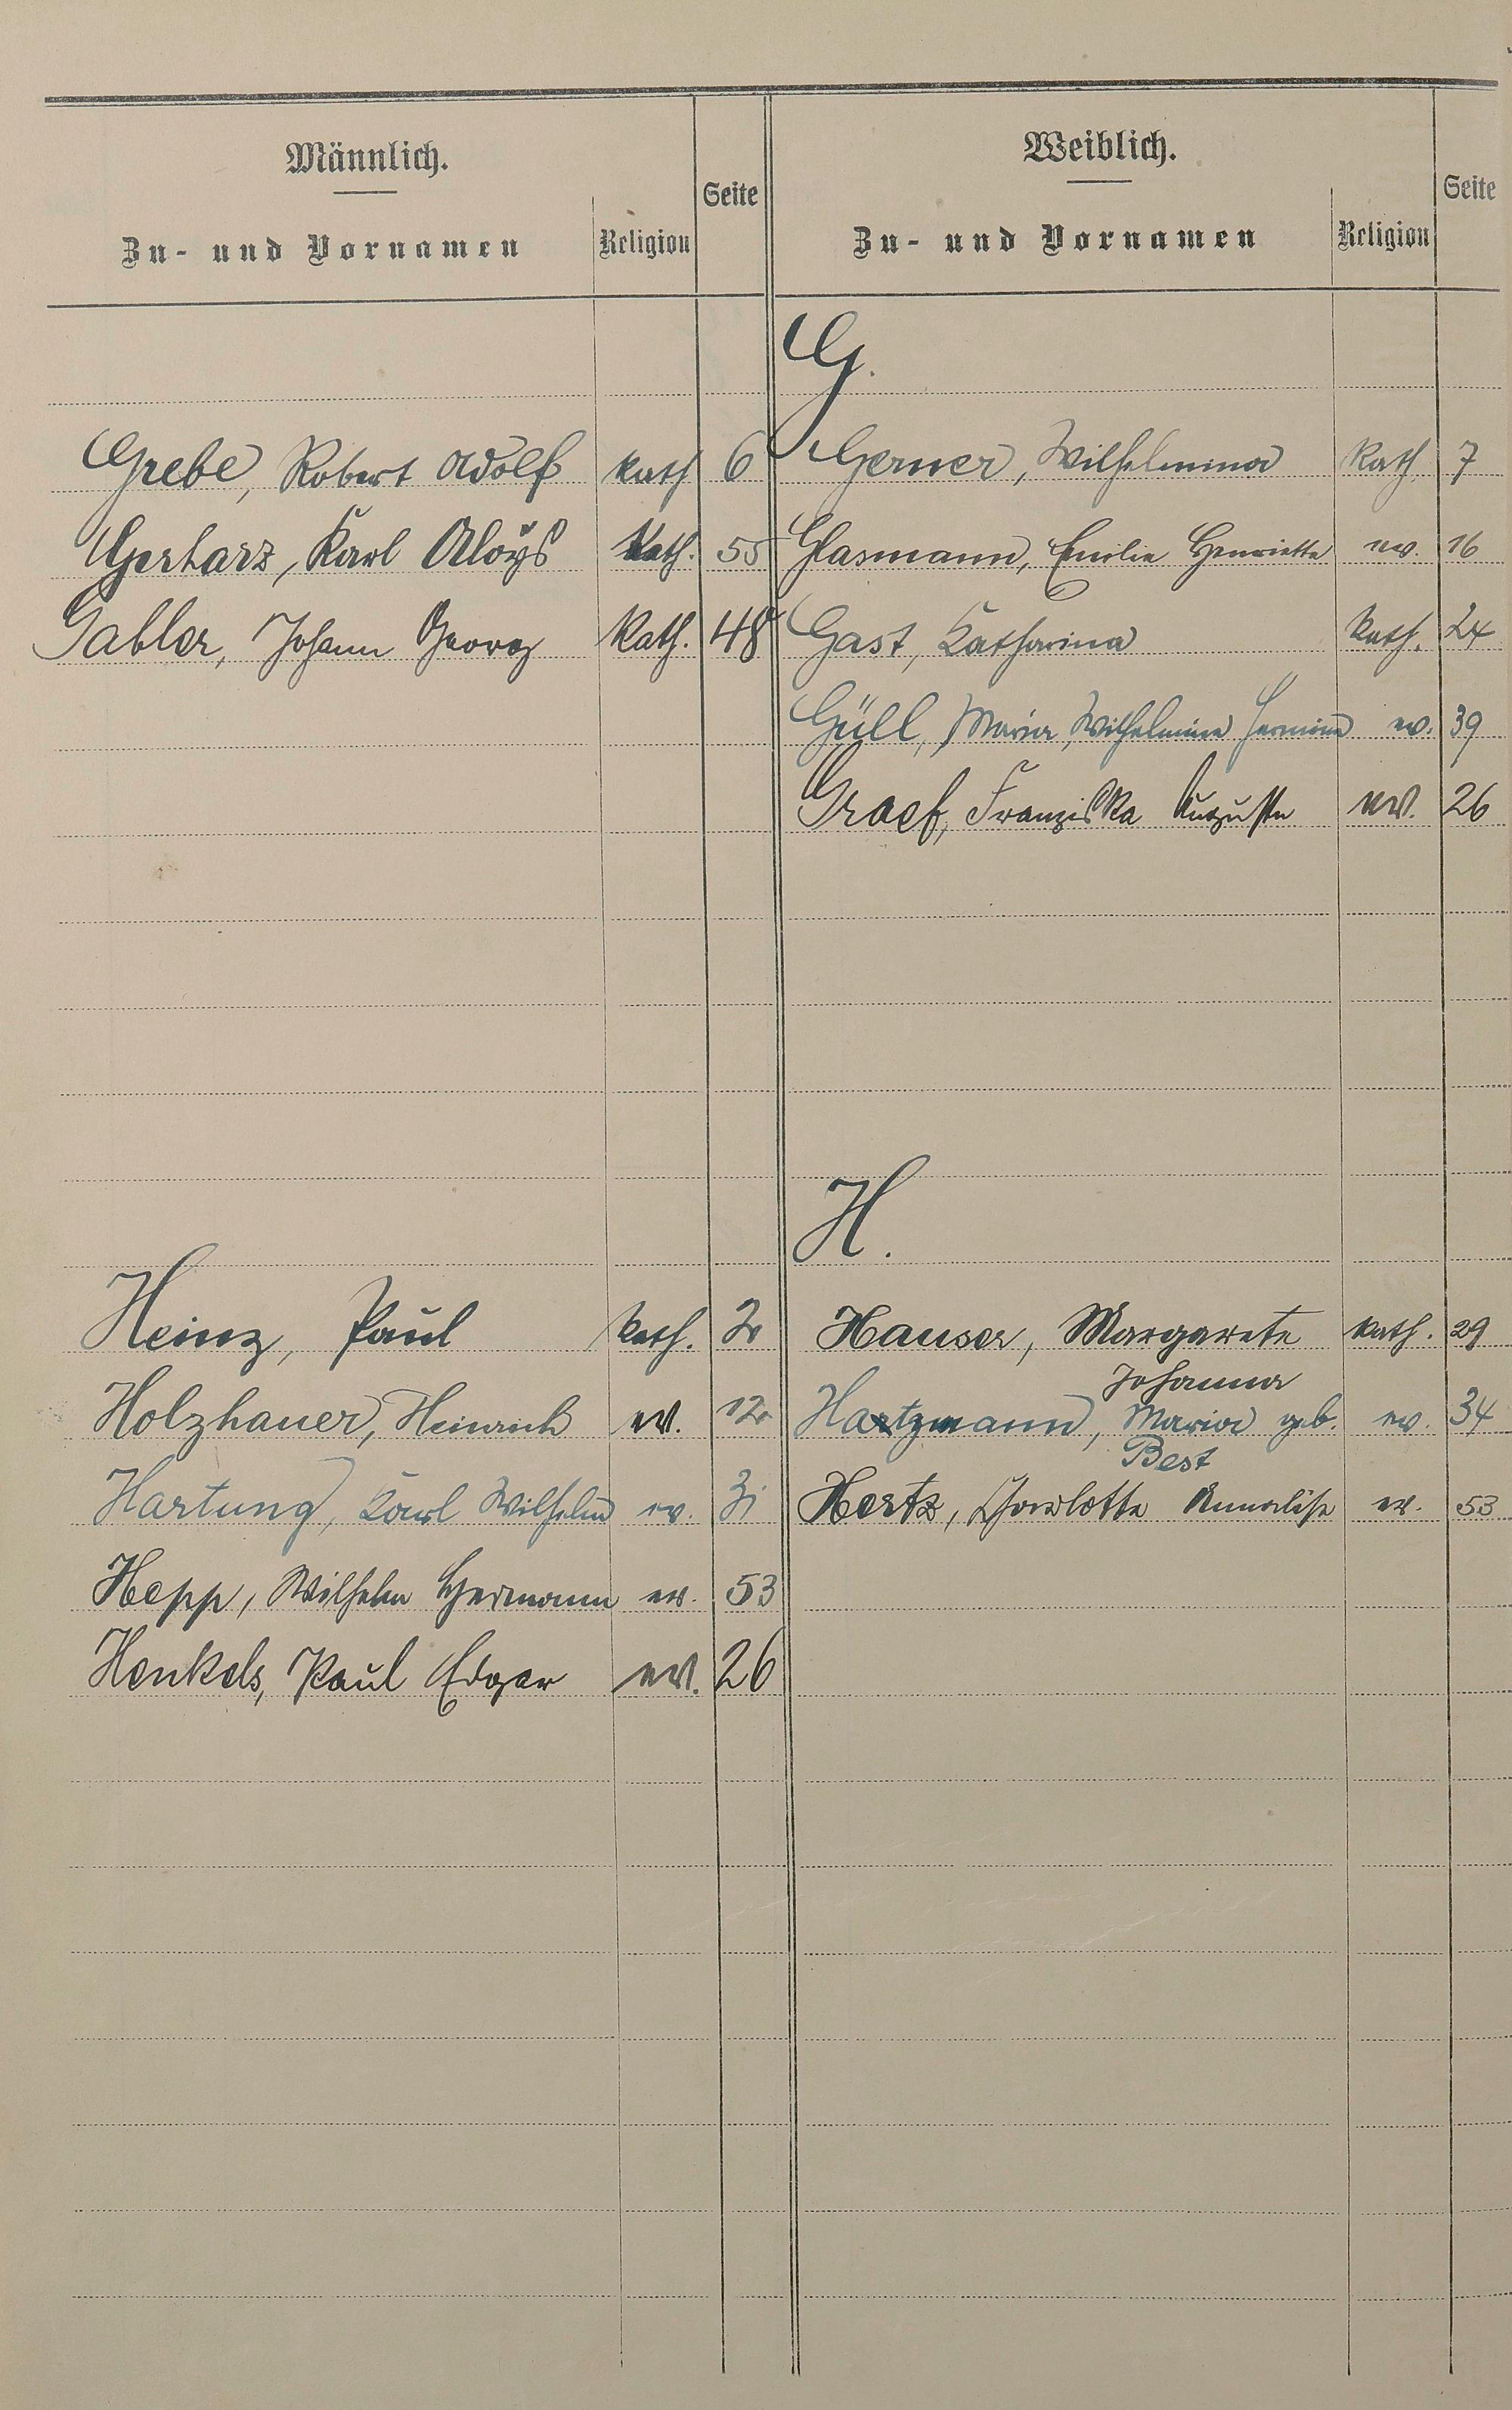 Männlich.
Zu- und Vornamen
Religion
Seite
Weiblich.
Zu- und Vornamen
Religion
Seite
G.
Grebe, Robert Adolf kath 6
Gerner, Wilhelmina kath. 7
Gerharz, Karl Aloys kath. 55
Glasmann, Emilie Henriette ev. 16
Gabler, Johann Georg kath. 48
Gast, Katharina kath. 24
Güll, Maria, Wilhelmine Hermine ev. 39
Graef, Franziska Auguste ev. 26
H.
Heinz, Paul kath. 2
Hauser, Margarete kath. 29
Johanna
Holzhauer, Heinrich ev. 12
Hartzmann, Maria geb. ev. 34
Best
Hartung, Karl Wilhelm ev. 31
Hertz, Charlotte Annaliese ev. 53
Hepp, Wilhelm Hermann ev. 53
Henkels, Paul Edgar ev. 26